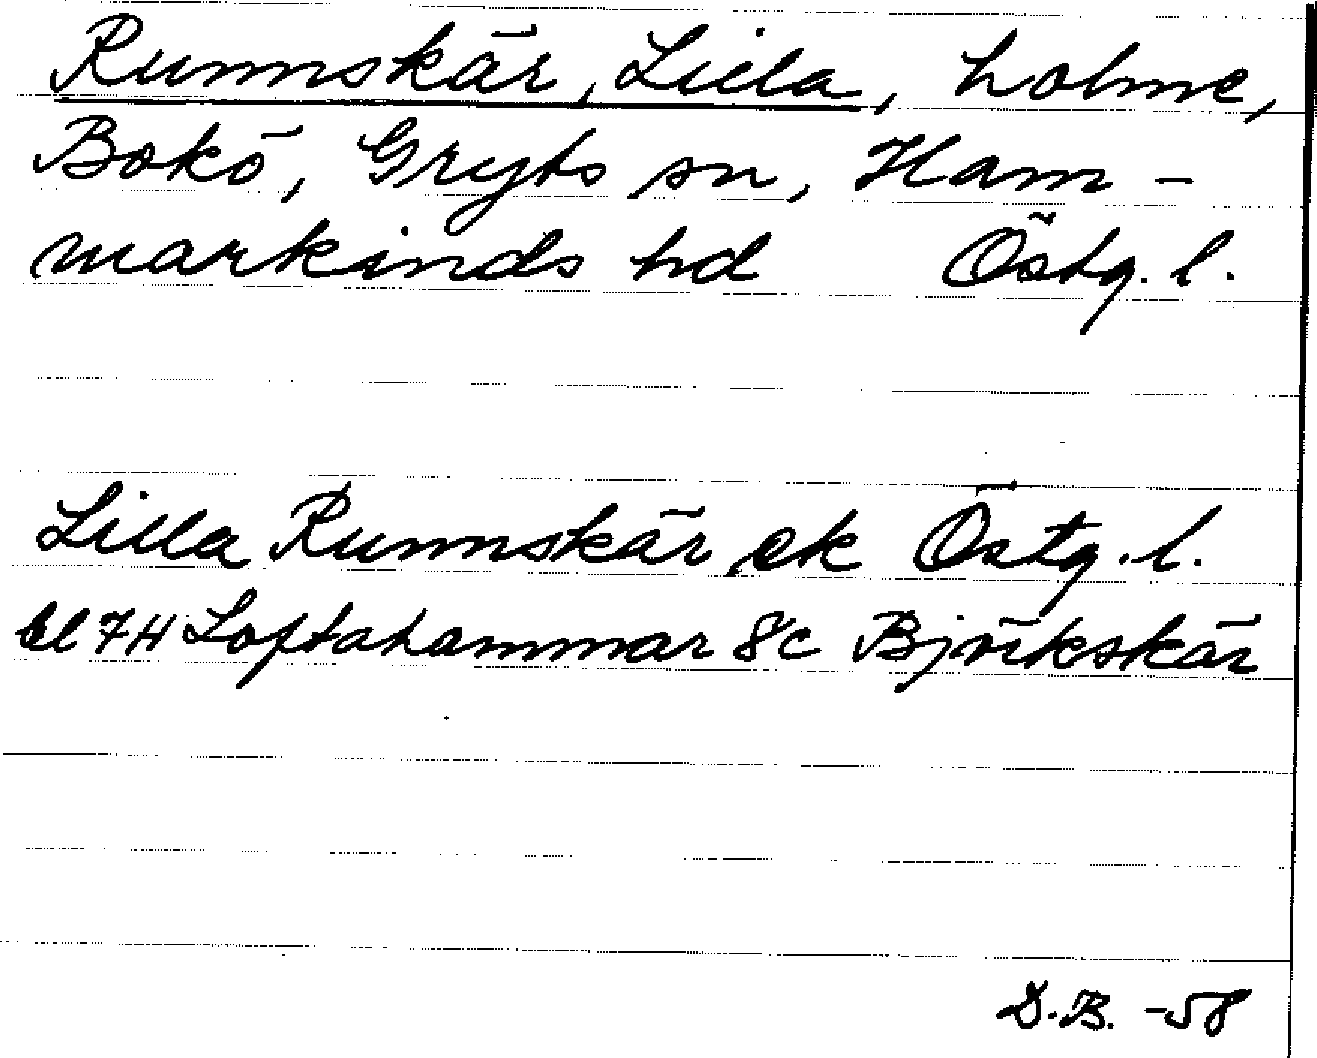 Runnskär, Lilla, holme,
Bokö, Gryts sn, Ham-
markinds hd Östg. l.
Lilla Runnskär ek Östg. l.
bl 7H Loftahammar 8c Björkskär
D.B. -58